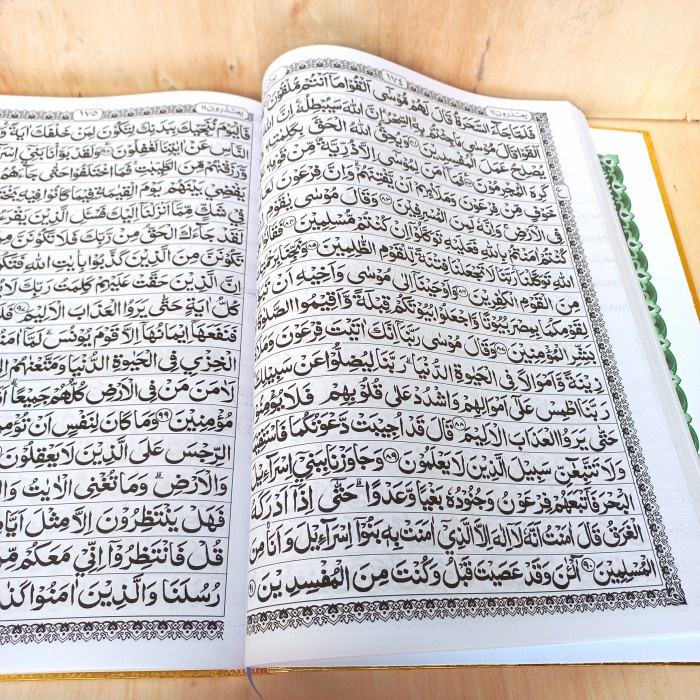 يعتذرون ١١
١٧٤
فَلَمَّا جَآءَ السَّحَرَةُ قَالَ لَهُمْ مُّوْسٰٓى اَلْقُوْا مَآ اَنْتُمْ مُّلْقُوْنَ
اَلْقَوْا قَالَ مُوْسٰى مَا جِئْتُمْ بِهِ السِّحْرُ اِنَّ اللّٰهَ سَيُبْطِلُهٗ اِنَّ اللّٰهَ
يُصْلِحُ عَمَلَ الْمُفْسِدِيْنَ ٨١ وَيُحِقُّ اللّٰهُ الْحَقَّ بِكَلِمٰتِهٖ
كَرِهَ الْمُجْرِمُوْنَ ٨٢ فَمَآ اٰمَنَ لِمُوْسٰٓى اِلَّا ذُرِّيَّةٌ مِّنْ قَوْمِهٖ
خَوْفٍ مِّنْ فِرْعَوْنَ وَمَلَا۟ئِهِمْ اَنْ يَّفْتِنَهُمْ وَاِنَّ فِرْعَوْنَ
فِى الْاَرْضِ وَاِنَّهٗ لَمِنَ الْمُسْرِفِيْنَ ٨٣ وَقَالَ مُوْسٰى يٰقَوْمِ
كُنْتُمْ اٰمَنْتُمْ بِاللّٰهِ فَعَلَيْهِ تَوَكَّلُوْٓا اِنْ كُنْتُمْ مُّسْلِمِيْنَ ٨٤ فَقَالُوْا
اللّٰهِ تَوَكَّلْنَا رَبَّنَا لَا تَجْعَلْنَا فِتْنَةً لِّلْقَوْمِ الظّٰلِمِيْنَ ٨٥ وَنَجِّنَا
مِنَ الْقَوْمِ الْكٰفِرِيْنَ ٨٦ وَاَوْحَيْنَآ اِلٰى مُوْسٰى وَاَخِيْهِ اَنْ
لِقَوْمِكُمَا بِمِصْرَ بُيُوْتًا وَّاجْعَلُوْا بُيُوْتَكُمْ قِبْلَةً وَّاَقِيْمُوا الصَّلٰوةَ
بَشِّرِ الْمُؤْمِنِيْنَ ٨٧ وَقَالَ مُوْسٰى رَبَّنَآ اِنَّكَ اٰتَيْتَ فِرْعَوْنَ
زِيْنَةً وَّاَمْوَالًا فِى الْحَيٰوةِ الدُّنْيَا رَبَّنَا لِيُضِلُّوْا عَنْ سَبِيْلِكَ
رَبَّنَا اطْمِسْ عَلٰٓى اَمْوَالِهِمْ وَاشْدُدْ عَلٰى قُلُوْبِهِمْ فَلَا يُؤْمِنُوْا
حَتّٰى يَرَوُا الْعَذَابَ الْاَلِيْمَ ٨٨ قَالَ قَدْ اُجِيْبَتْ دَّعْوَتُكُمَا فَاسْتَقِيْمَا
وَلَا تَتَّبِعٰٓنِّ سَبِيْلَ الَّذِيْنَ لَا يَعْلَمُوْنَ ٨٩ وَجَاوَزْنَا بِبَنِيْٓ اِسْرَآءِيْلَ
الْبَحْرَ فَاَتْبَعَهُمْ فِرْعَوْنُ وَجُنُوْدُهٗ بَغْيًا وَّعَدْوًا حَتّٰٓى اِذَآ اَدْرَكَهُ
الْغَرَقُ قَالَ اٰمَنْتُ اَنَّهٗ لَآ اِلٰهَ اِلَّا الَّذِيْٓ اٰمَنَتْ بِهٖ بَنُوْٓا اِسْرَآءِيْلَ وَاَنَا مِنَ
الْمُسْلِمِيْنَ ٩٠ آٰلْـٰٔنَ وَقَدْ عَصَيْتَ قَبْلُ وَكُنْتَ مِنَ الْمُفْسِدِيْنَ ٩١
يعتذرون ١١
١٧٥
فَالْيَوْمَ نُنَجِّيْكَ بِبَدَنِكَ لِتَكُوْنَ لِمَنْ خَلْفَكَ اٰيَةً
النَّاسِ عَنْ اٰيٰتِنَا لَغٰفِلُوْنَ ٩٢ وَلَقَدْ بَوَّأْنَا بَنِيْٓ
وَرَزَقْنٰهُمْ مِّنَ الطَّيِّبٰتِ فَمَا اخْتَلَفُوْا حَتّٰى جَآءَهُمُ
يَقْضِيْ بَيْنَهُمْ يَوْمَ الْقِيٰمَةِ فِيْمَا كَانُوْا فِيْهِ
فِيْ شَكٍّ مِّمَّآ اَنْزَلْنَآ اِلَيْكَ فَسْـَٔلِ الَّذِيْنَ
لَقَدْ جَآءَكَ الْحَقُّ مِنْ رَّبِّكَ فَلَا تَكُوْنَنَّ
تَكُوْنَنَّ مِنَ الَّذِيْنَ كَذَّبُوْا بِاٰيٰتِ اللّٰهِ فَتَكُوْنَ
اِنَّ الَّذِيْنَ حَقَّتْ عَلَيْهِمْ كَلِمَتُ رَبِّكَ لَا
كُلُّ اٰيَةٍ حَتّٰى يَرَوُا الْعَذَابَ الْاَلِيْمَ ٩٧
فَنَفَعَهَآ اِيْمَانُهَآ اِلَّا قَوْمَ يُوْنُسَ لَمَّآ اٰمَنُوْا
الْخِزْيِ فِى الْحَيٰوةِ الدُّنْيَا وَمَتَّعْنٰهُمْ
لَاٰمَنَ مَنْ فِى الْاَرْضِ كُلُّهُمْ جَمِيْعًا
مُؤْمِنِيْنَ ٩٩ وَمَا كَانَ لِنَفْسٍ اَنْ تُؤْمِنَ
الرِّجْسَ عَلَى الَّذِيْنَ لَا يَعْقِلُوْنَ
وَالْاَرْضِ وَمَا تُغْنِى الْاٰيٰتُ
فَهَلْ يَنْتَظِرُوْنَ اِلَّا مِثْلَ اَيَّامِ
قُلْ فَانْتَظِرُوْٓا اِنِّيْ مَعَكُمْ مِّنَ
رُسُلَنَا وَالَّذِيْنَ اٰمَنُوْا